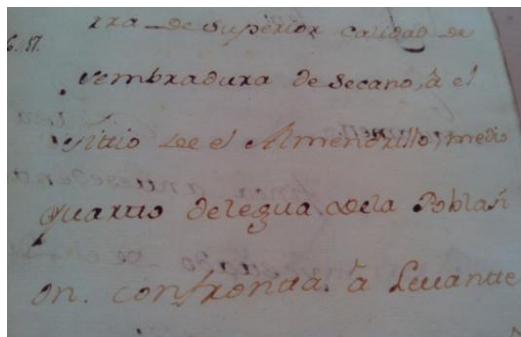 rra de superior calidad de
6. 87.
sembradura de Secano, â el
sitio de el Almendrillo, medio
quarto de legua de la Poblaz̃
on. confronta â Levante